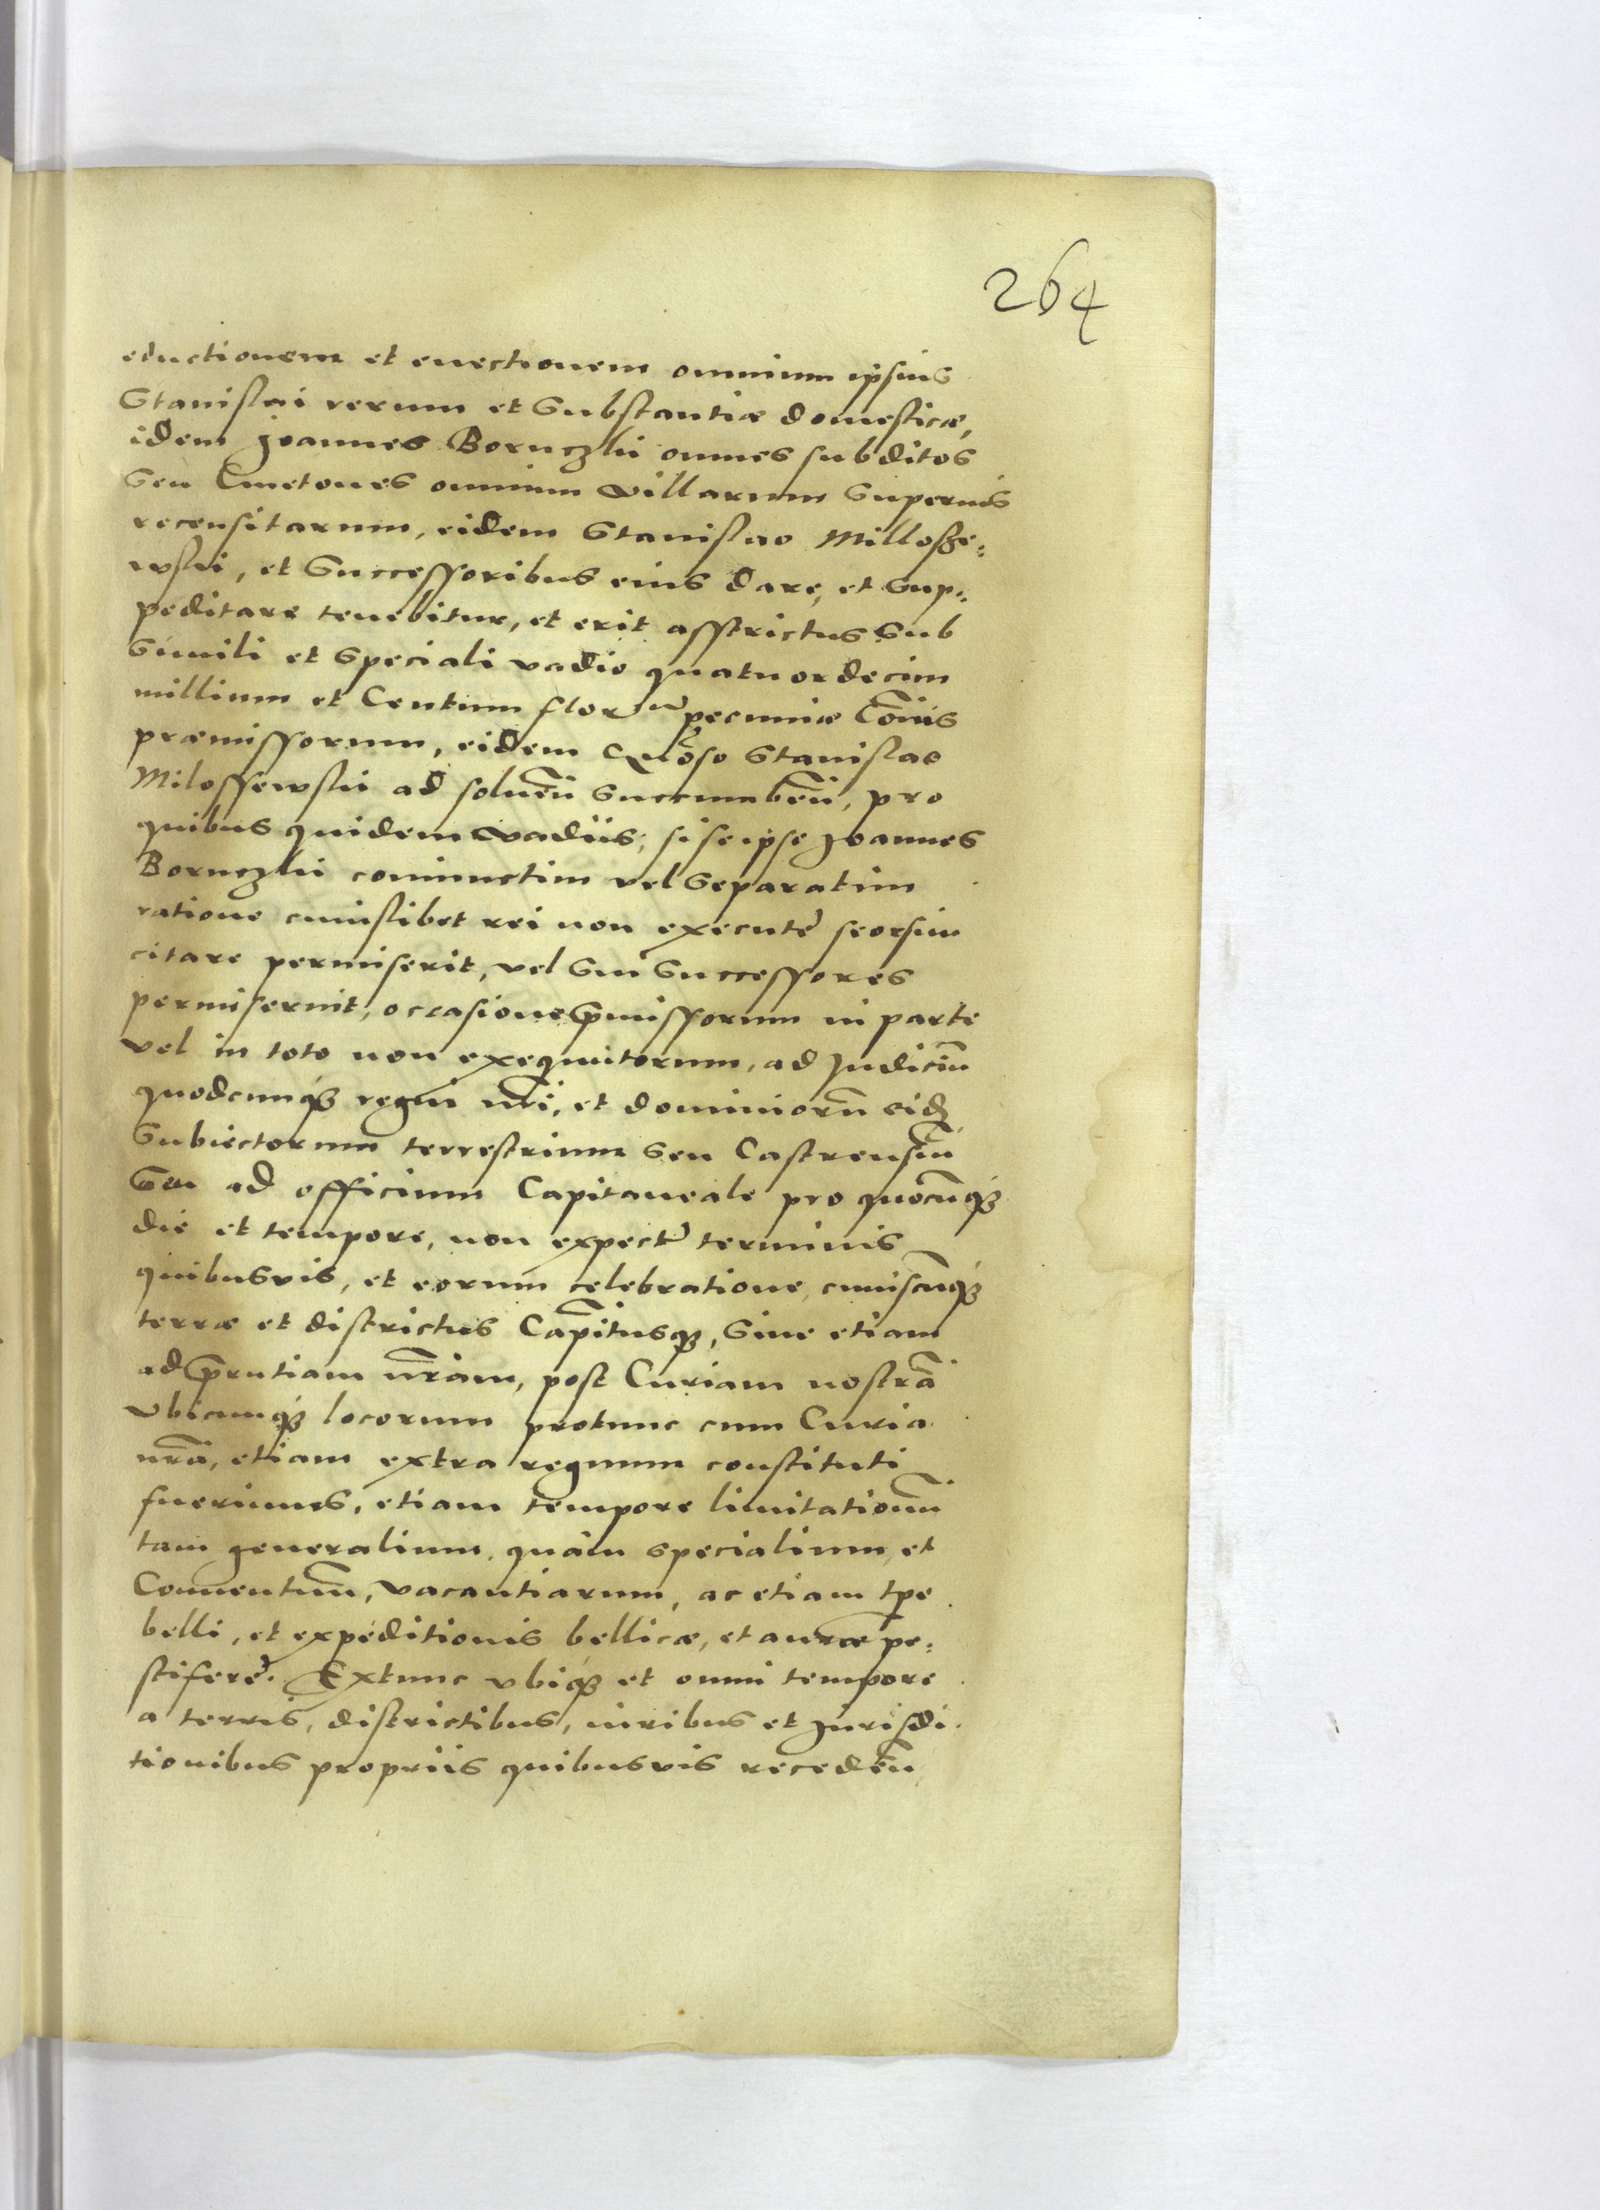 264
eductionem et euectionem omnium ipsius
Stanislai rerum et substantiæ domesticæ,
idem Joannes Bornczki omnes subditos
seu Cmetones omnium villarum superius
recensitarum, eidem Stanislao Millosze-
wski, et successoribus eius dare, et sup-
peditare tenebitur, et erit asstrictus sub
simili et speciali vadio quatuordecim
millium et Centum flor pecuniæ cõnis
præmissorum, eidem Gñoso Stanislao
Milossewski ad soluẽn succumbẽn, pro
quibus quidem vadiis, si se ipse Joannes
Bornczki coniunctim vel separatim
ratione cuiuslibet rei non execute seorsim
citare permiserit, vel sui successores
permiserint, occasione p̃missorum in parte
vel in toto non exequutorum, ad Judiciũ
quodcunq3 regni nr̃i, et dominiorũ eid
subiectorum terrestrium seu Castrensiũ
seu ad officium Capitaneale pro quocũq3
die et tempore, non expect terminis
quibusvis, et eorum celebratione, cuiuscũq3
terræ et districtus Capĩtusq3, siue etiam
ad p̃rntiam nr̃am, post Curiam nostrã
vbicunq3 locorum protunc cum Curia
nr̃a, etiam extra regnum constituti
fuerimus, etiam tempore limitationũ
tam generalium, quàm specialium, et
Conuentuũ, vacantiarum, ac etiam tp̃e
belli, et expeditionis bellicæ, et auræ pe-
stiferę. Extunc vbiq3 et omni tempore
a terris, districtibus, iuribus et Jurisdi-
tionibus propriis quibusvis recedẽn